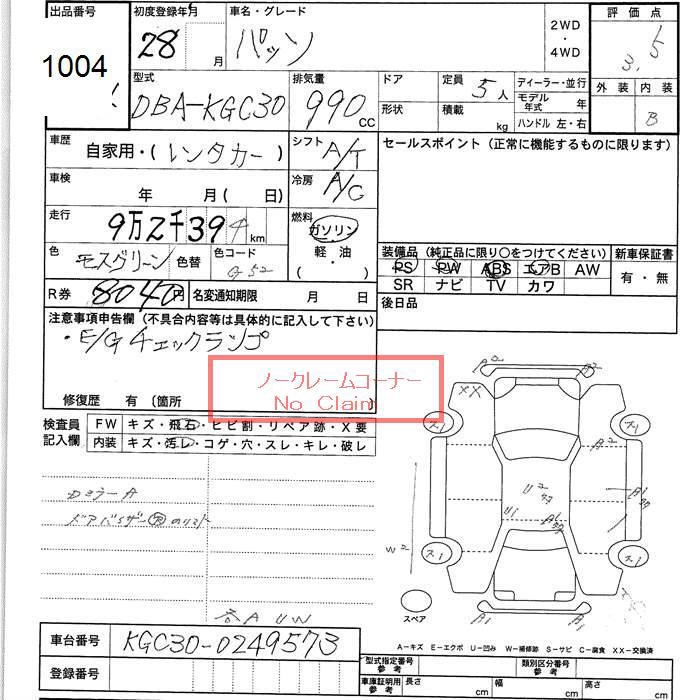 出品番号
1004
初度登録年月
28 月
車名・グレード
パッソ
2WD
・
4WD
評価点
3.5
外装 内装
B
型式
DBA-KGC30
排気量
990 cc
ドア
形状
定員
5人
積載
kg
ディーラー・並行
モデル年式 年
ハンドル 左・右
車歴
自家用・(レンタカー)
シフト
A/T
冷房
A/C
セールスポイント (正常に機能するものに限ります)
車検
年 月 ( 日)
走行
9万2千394 km
燃料
ガソリン
・
軽油
( )
色
モスグリーン
色替
色コード
G52
装備品 (純正品に限り○をつけてください)
PS PW ABS エアB AW
SR ナビ TV カワ
新車保証書
有・無
後日品
R券
8040円
名変通知期限 月 日
注意事項申告欄 (不具合内容等は具体的に記入して下さい)
・E/Gチェックランプ
修復歴 有 (箇所
ノークレームコーナー
No Claim
検査員
記入欄
FW
キズ・飛石・ヒビ割・リペア跡・X要
内装
キズ・汚レ・コゲ・穴・スレ・キレ・破レ
ドアバイザー
各AUW
A2
A2
XX
ス1
ス1
A2
A2
U2
A1
U1
A1
W2
ス1
ス1
スペア
A1
A1
車台番号
KGC30-0249573
登録番号
A-キズ E-エクボ U-凹み W-補修跡 S-サビ C-腐食 XX-交換済
型式指定番号
参考
類別区分番号
参考
車庫証明用
参考
長さ cm
幅 cm
高さ cm